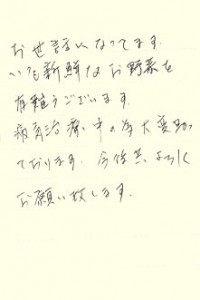 お世話になってます.
いつも新鮮なお野菜を
有難うございます.
病気治療中の為大変助か
っております. 今後共よろしく
お願い致します.